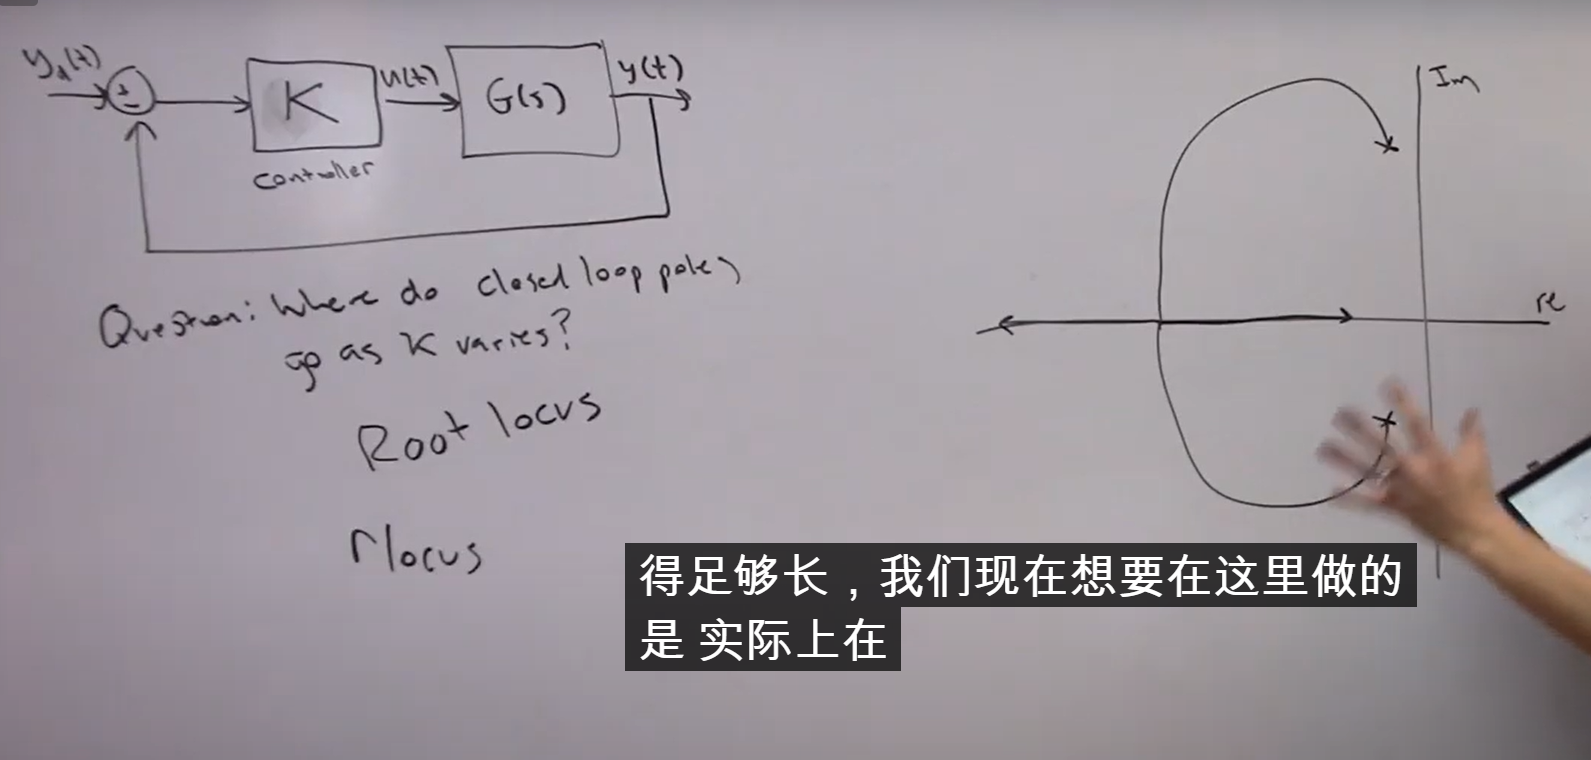 y_d(t)
+
-
K
u(t)
G(s)
y(t)
controller
Question: Where do closed loop poles
go as K varies?
Root locus
rlocus
Im
re
得足够长，我们现在想要在这里做的
是 实际上在